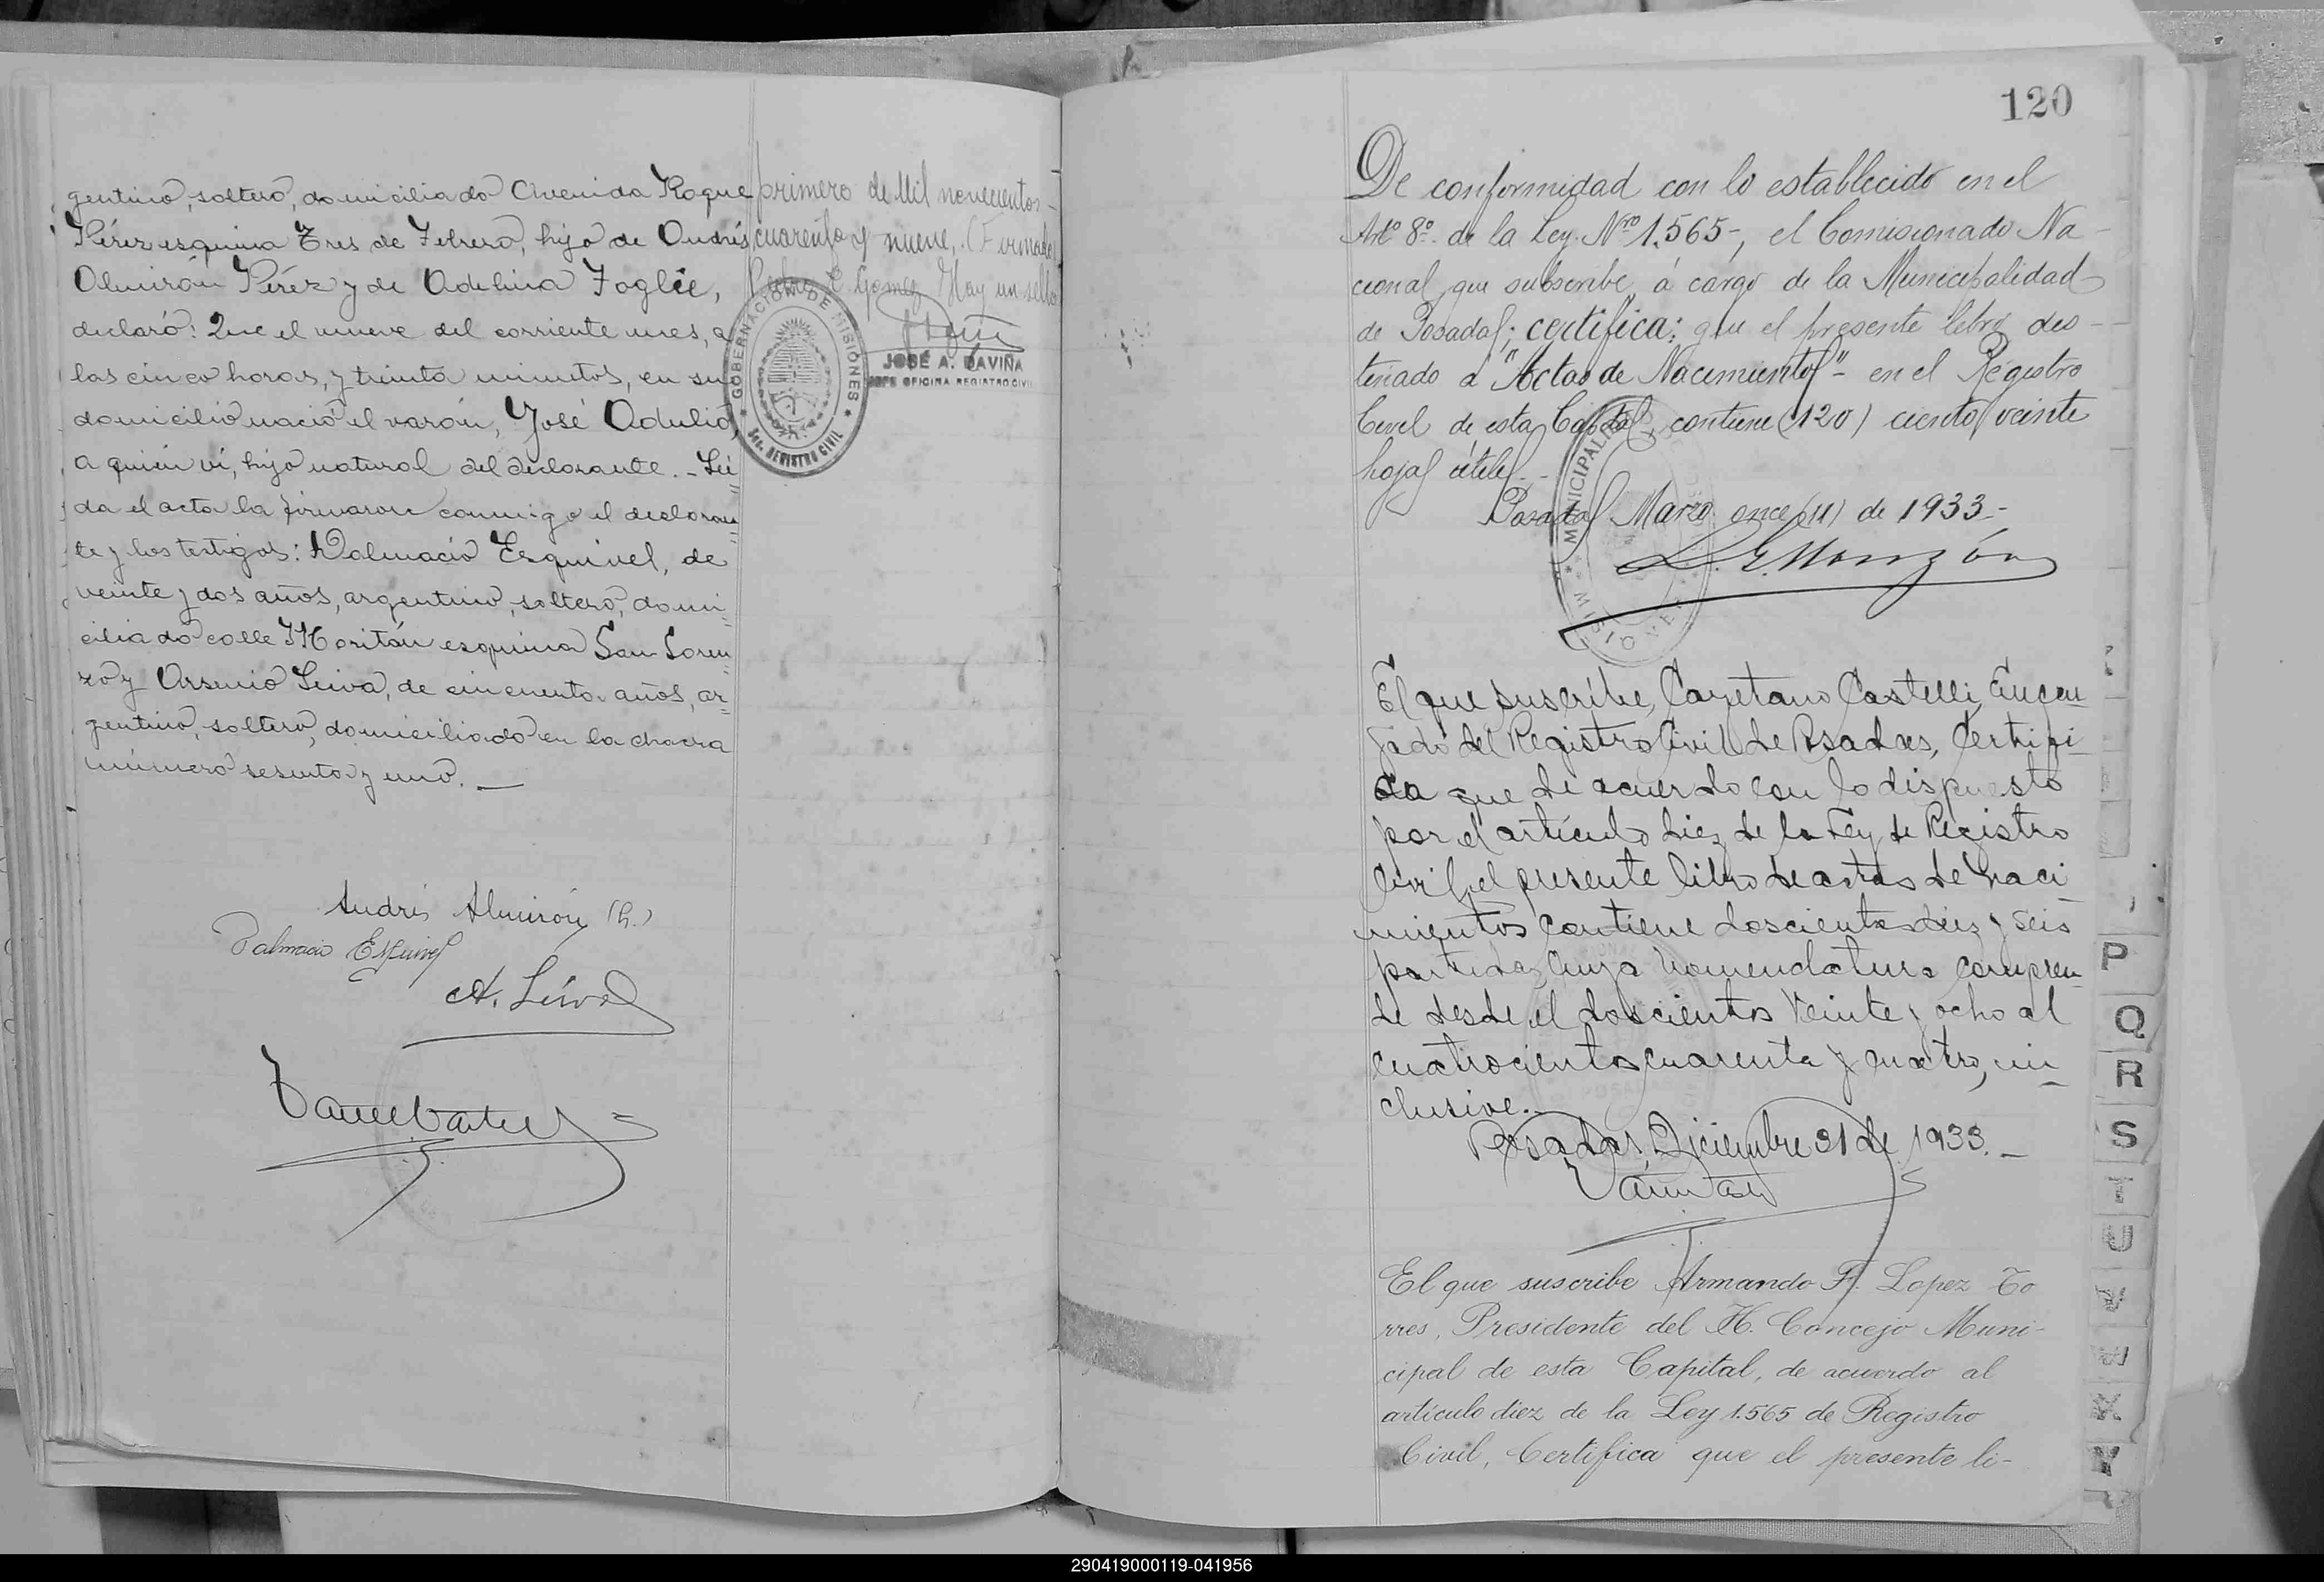 gentino, soltero, domiciliado Avenida Roque
Pérez esquina Tres de Febrero, hijo de Andrés
Almirón Pérez y de Adelina Foglie,
declaró: Que el nueve del corriente mes, a
las cinco horas, y treinta minutos, en su
domicilio nació el varón, José Adulio,
a quien ví, hijo natural del declarante. - Leí
da el acta la firmaron conmigo el declaran
te y los testigos: Dalmacio Esquivel, de
veinte y dos años, argentino, soltero, domi
ciliado calle Moritán esquina San Loren
zo y Arsenio Leiva, de cincuenta años, ar
gentino, soltero, domiciliado en la chacra
número sesenta y uno. —
Andrés Almirón (h.)
Dalmacio Esquivel
A. Leiva
primero de Mil novecientos -
cuarenta y nueve. (Firmado)
Pedro C. Gomez Hay un sello
GOBERNACION DE MISIONES
REGISTRO CIVIL
JOSÉ A. DAVIÑA
JEFE OFICINA REGISTRO CIVIL
120
De conformidad con lo establecido en el
Artº 8º. de la Ley. Nro 1.565-, el Comisionado Na -
cional, que subscribe, á cargo de la Municipalidad
de Posadas; certifica: que el presente libro des -
tinado a "Actas de Nacimientos" - en el Registro
Civil de esta Capital, contiene (120) ciento veinte
hojas útiles. -
Posadas Marzo once (11) de 1933 -
L. E. Monzón
MUNICIPALI
MISIO
El que suscribe, Cayetano Castelli, Encar
gado del Registro Civil de Posadas, Certifi
ca que de acuerdo con lo dispuesto
por el artículo diez de la Ley de Registro
Civil, el presente libro de actas de naci
mientos contiene doscientas diez y seis
partidas, cuya nomenclatura compren
de desde el doscientos veinte y ocho al
cuatrocientos cuarenta y cuatro, in
clusive.
Posadas, Diciembre 31 de 1933. —
El que suscribe Armando F. Lopez To
rres, Presidente del H. Concejo Muni-
cipal de esta Capital, de acuerdo al
artículo diez de la Ley 1.565 de Registro
Civil, Certifica que el presente li-
P
Q
R
S
T
U
V
W
X
Y
290419000119-041956